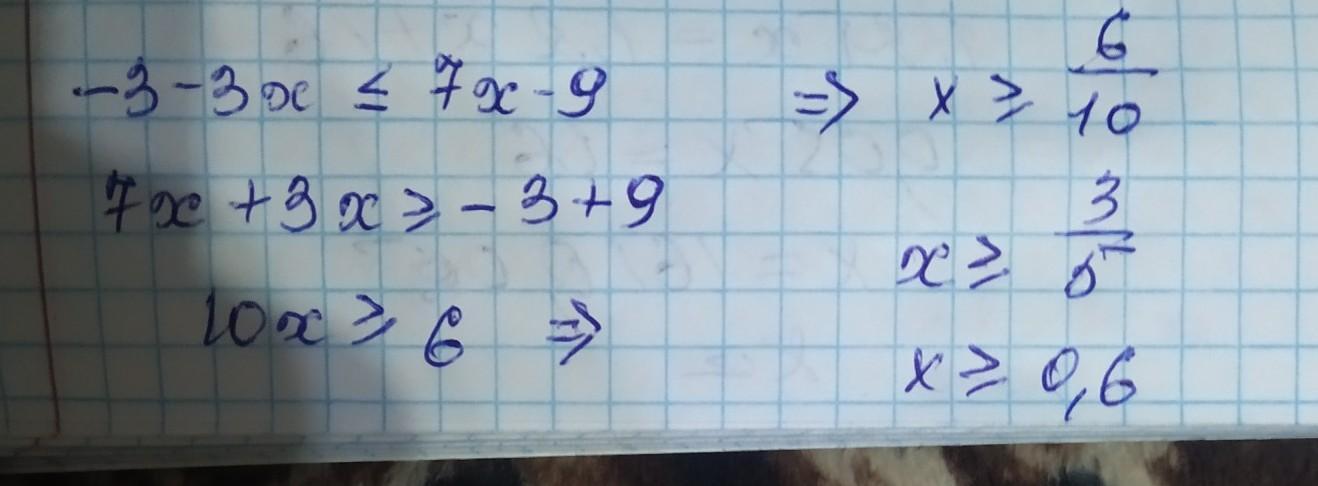 -3-3x ≤ 7x-9
7x+3x ≥ -3+9
10x ≥ 6 ⇒
⇒ x ≥ 6/10
x ≥ 3/5
x ≥ 0,6